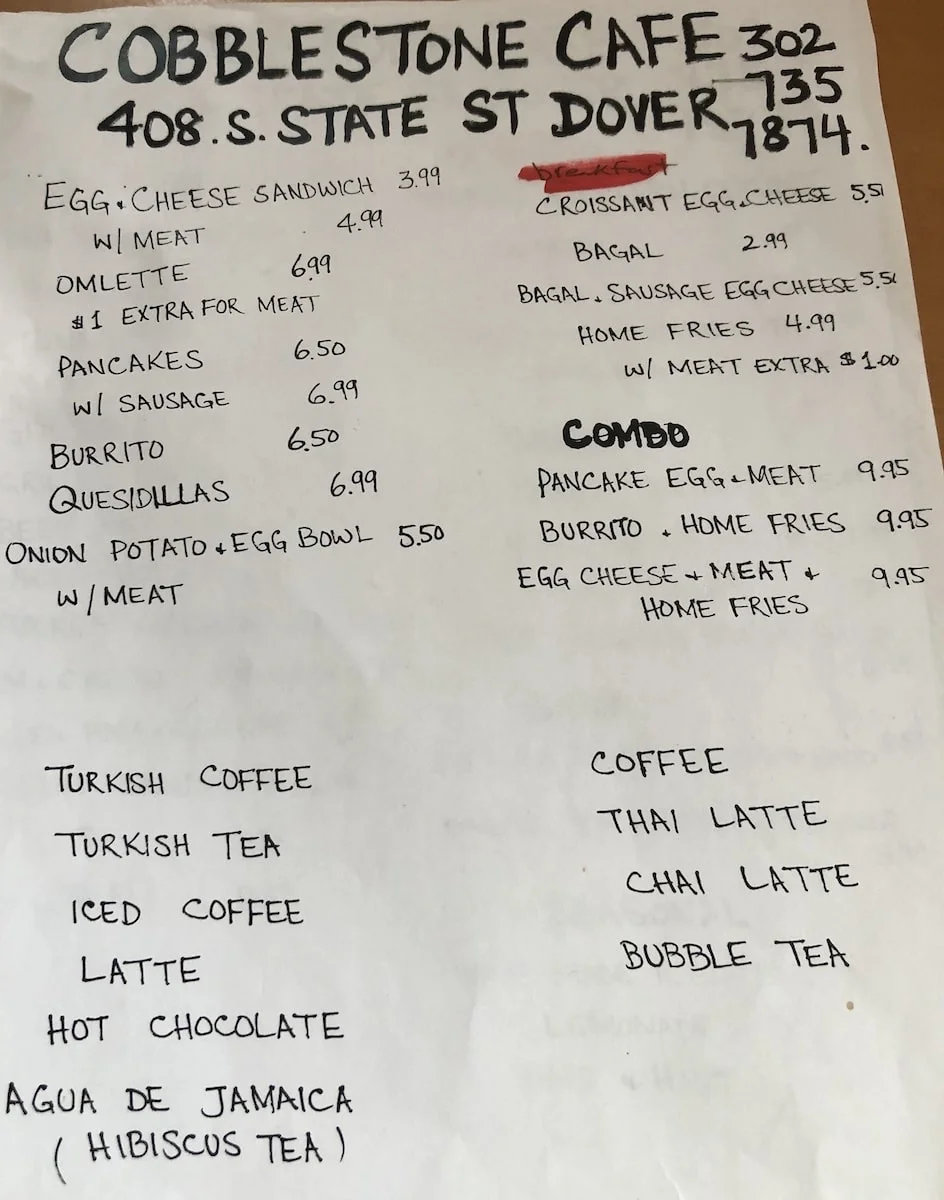 COBBLESTONE CAFE 302
408.S. STATE ST DOVER 735
7874.
EGG & CHEESE SANDWICH 3.99
W/ MEAT 4.99
OMLETTE 6.99
$1 EXTRA FOR MEAT
PANCAKES 6.50
W/ SAUSAGE 6.99
BURRITO 6.50
QUESIDILLAS 6.99
ONION POTATO & EGG BOWL 5.50
W/MEAT
breakfast
CROISSANT EGG & CHEESE
BAGAL 2.99
BAGAL & SAUSAGE EGG CHEESE
HOME FRIES 4.99
W/ MEAT EXTRA $1.00
COMBO
PANCAKE EGG & MEAT 9.95
BURRITO & HOME FRIES 9.95
EGG CHEESE & MEAT & 9.95
HOME FRIES
TURKISH COFFEE
TURKISH TEA
ICED COFFEE
LATTE
HOT CHOCOLATE
AGUA DE JAMAICA
(HIBISCUS TEA)
COFFEE
THAI LATTE
CHAI LATTE
BUBBLE TEA